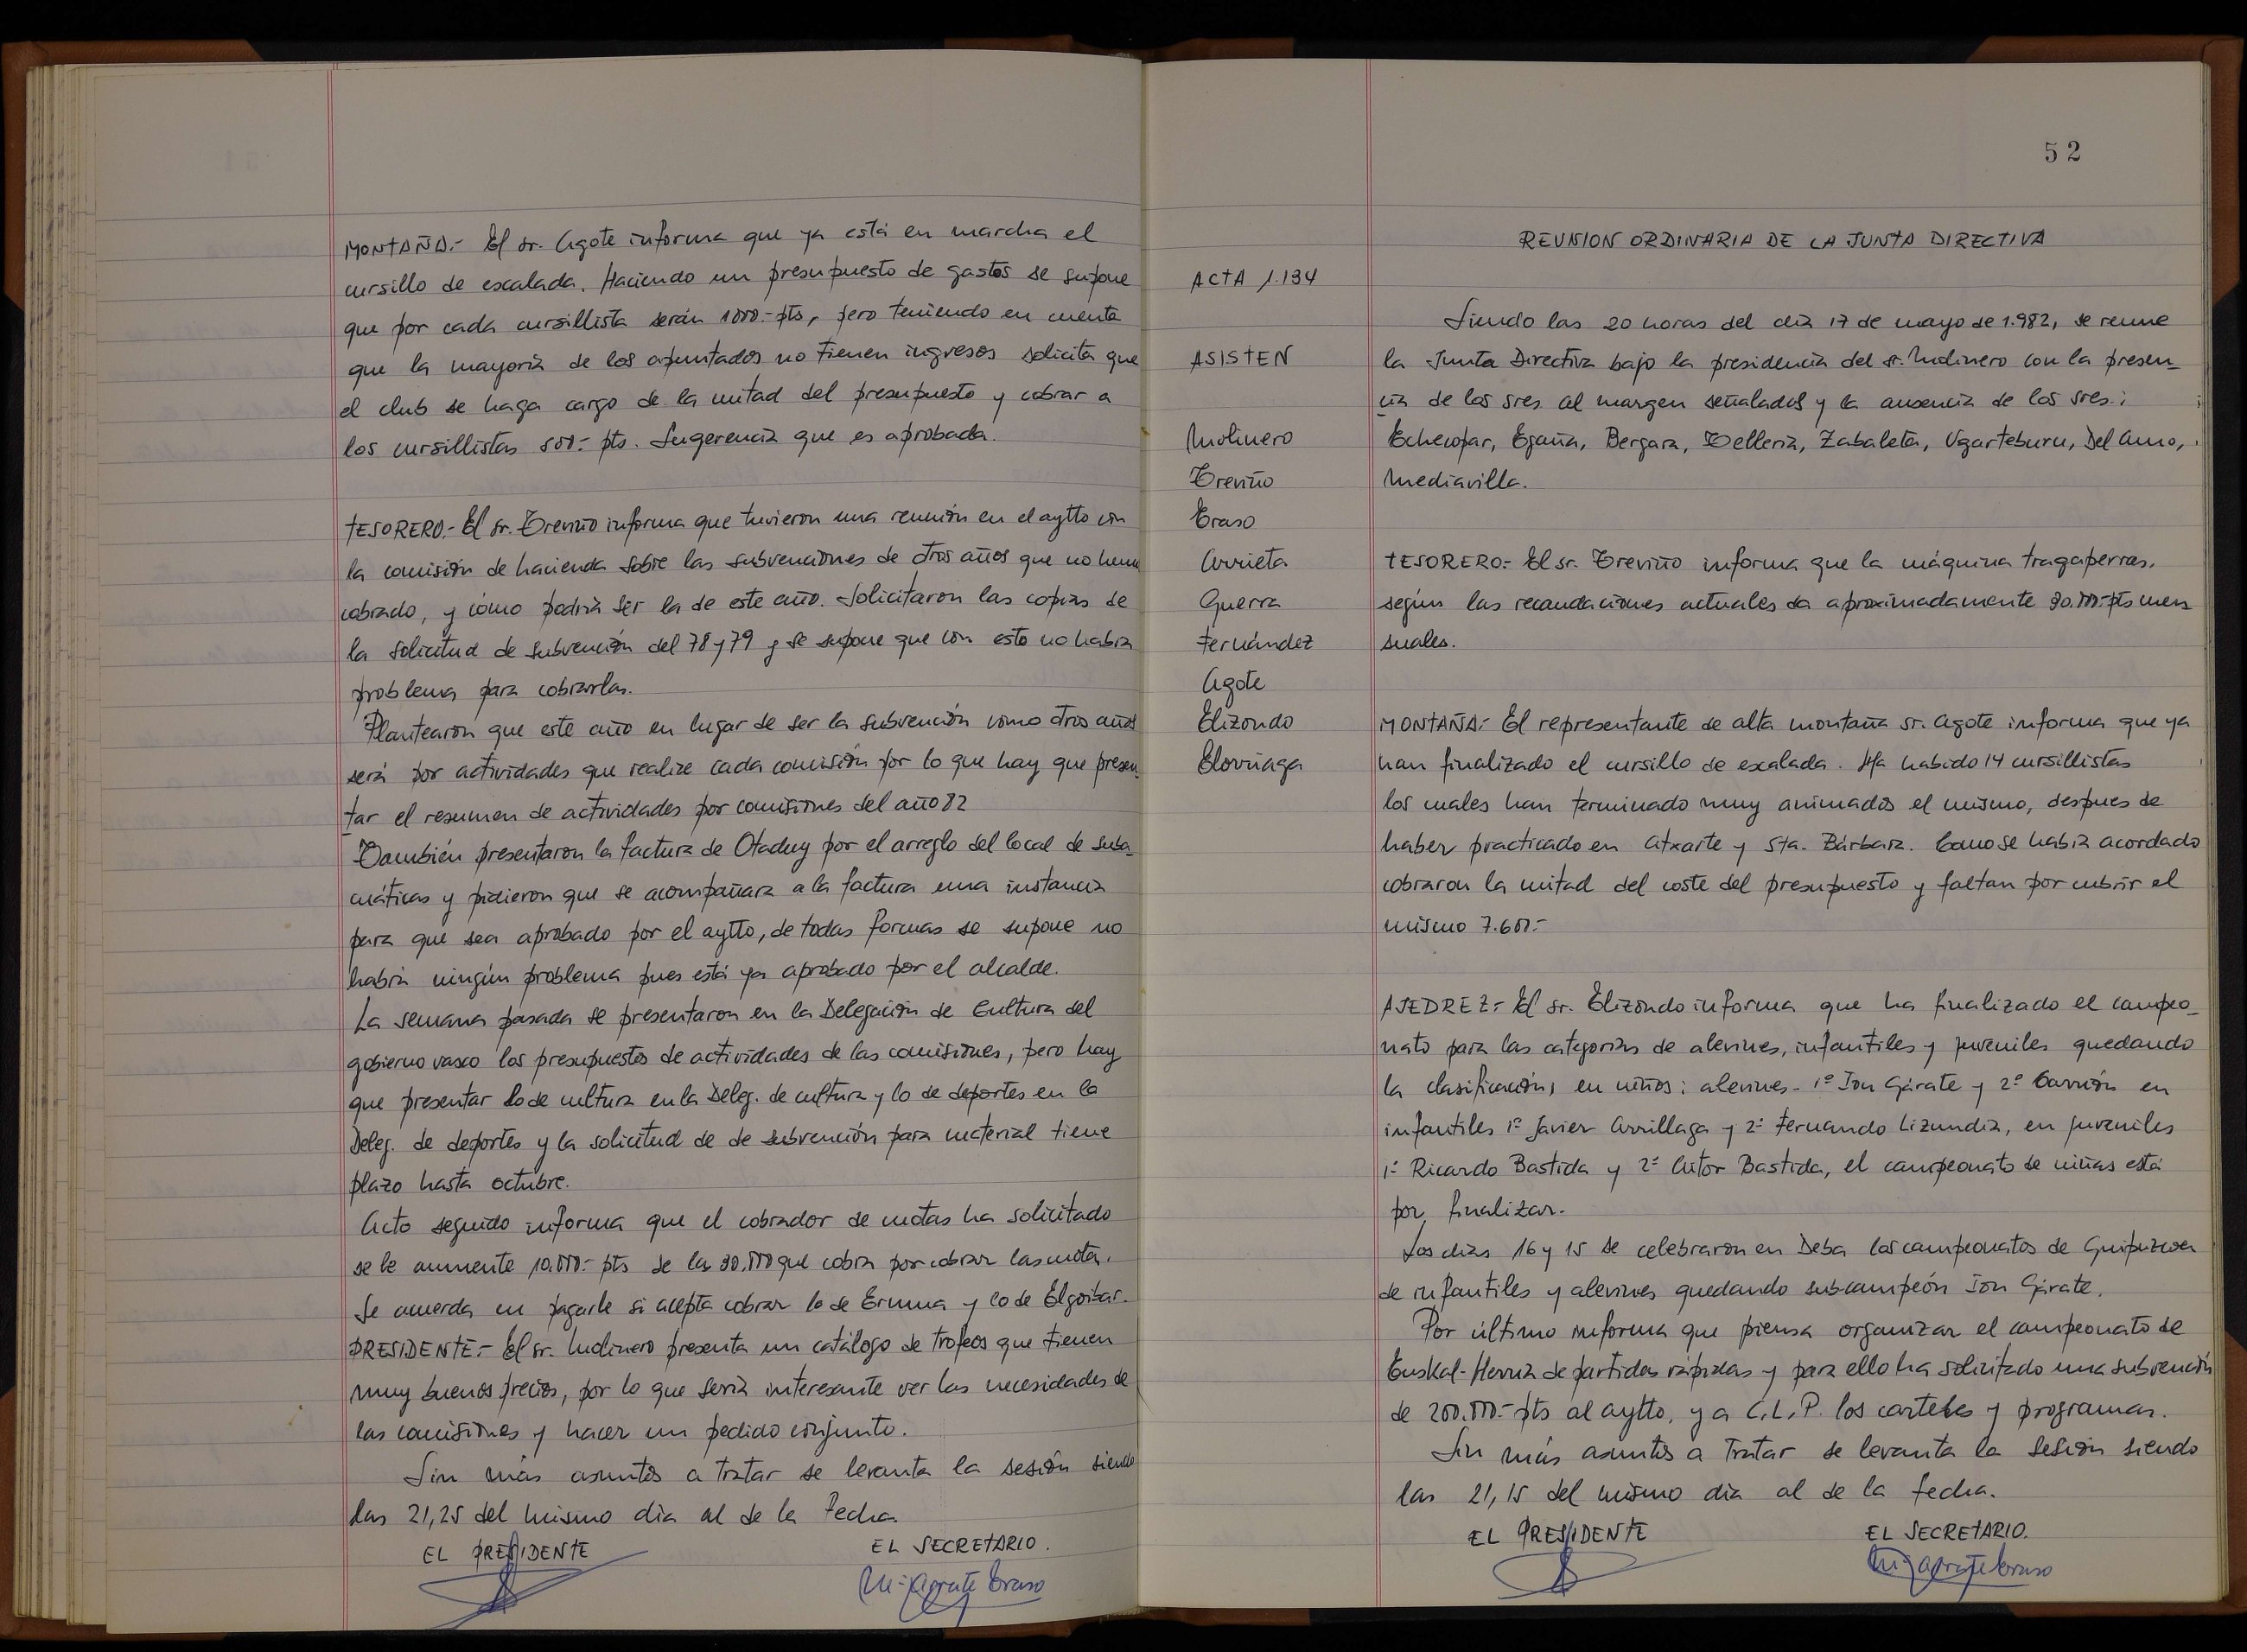 MONTAÑA.- El sr. Agote informa que ya está en marcha el
cursillo de escalada. Haciendo un presupuesto de gastos se supone
que por cada cursillista serán 1000.- pts, pero teniendo en cuenta
que la mayoría de los apuntados no tienen ingresos solicita que
el club se haga cargo de la mitad del presupuesto y cobrar a
los cursillistas 500.- pts. Sugerencia que es aprobada.
TESORERO.- El sr. Treviño informa que tuvieron una reunión en el aytto con
la comisión de hacienda sobre las subvenciones de otros años que no hemos
cobrado, y cómo podría ser la de este año. Solicitaron las copias de
la solicitud de subvención del 78 y 79 y se supone que con esto no habrá
problema para cobrarlas.
Plantearon que este año en lugar de ser la subvención como otros años
será por actividades que realize cada comisión por lo que hay que presen_
tar el resumen de actividades por comisiones del año 82
También presentaron la factura de Otaduy por el arreglo del local de suba_
cuáticas y pidieron que se acompañara a la factura una instancia
para que sea aprobado por el aytto, de todas formas se supone no
habrá ningún problema pues está ya aprobado por el alcalde.
La semana pasada se presentaron en la Delegación de Cultura del
gobierno vasco los presupuestos de actividades de las comisiones, pero hay
que presentar lo de cultura en la Deleg. de cultura y lo de deportes en la
Deleg. de deportes y la solicitud de de subvención para material tiene
plazo hasta octubre.
Acto seguido informa que el cobrador de cuotas ha solicitado
se le aumente 10.000.- pts de las 30.000 que cobra por cobrar las cuotas.
Se acuerda en pagarle si acepta cobrar lo de Ermua y lo de Elgoibar.
PRESIDENTE.- El sr. Molinero presenta un catálogo de trofeos que tienen
muy buenos precios, por lo que sería interesante ver las necesidades de
las comisiones y hacer un pedido conjunto.
Sin más asuntos a tratar se levanta la sesión siendo
las 21,25 del mismo día al de la fecha.
EL PRESIDENTE EL SECRETARIO.
52
REUNION ORDINARIA DE LA JUNTA DIRECTIVA
ACTA 1.134
ASISTEN
Molinero
Treviño
Eraso
Arrieta
Guerra
Fernández
Agote
Elizondo
Elorriaga
Siendo las 20 horas del día 17 de mayo de 1.982, se reune
la Junta Directiva bajo la presidencia del sr. Molinero con la presen_
cia de los sres. al margen señalados y la ausencia de los sres.:
Echecopar, Egaña, Bergara, Tellería, Zabaleta, Ugarteburu, Del Amo,
Mediavilla.
TESORERO.- El sr. Treviño informa que la máquina tragaperras,
según las recaudaciones actuales da aproximadamente 30.000.- pts men
suales.
MONTAÑA.- El representante de alta montaña sr. Agote informa que ya
han finalizado el cursillo de escalada. Ha habido 14 cursillistas
los cuales han terminado muy animados el mismo, despues de
haber practicado en Atxarte y Sta. Bárbara. Como se había acordado
cobraron la mitad del coste del presupuesto y faltan por cubrir el
mismo 7.600.-
AJEDREZ.- El sr. Elizondo informa que ha finalizado el campeo_
nato para las categorías de alevines, infantiles y juveniles quedando
la clasificación, en niños: alevines - 1º Jon Gárate y 2º Carrión en
infantiles 1º Javier Arrillaga y 2º Fernando Lizundia, en juveniles
1º Ricardo Bastida y 2º Aitor Bastida, el campeonato de niñas está
por finalizar.
Los días 16 y 15 se celebraron en Deba los campeonatos de Guipúzcoa
de infantiles y alevines quedando subcampeón Jon Gárate.
Por último informa que piensa organizar el campeonato de
Euskal-Herria de partidas rápidas y para ello ha solicitado una subvención
de 200.000.- pts al aytto, y a C.L.P. los carteles y programas.
Sin más asuntos a tratar se levanta la sesión siendo
las 21,15 del mismo día al de la fecha.
EL PRESIDENTE EL SECRETARIO.